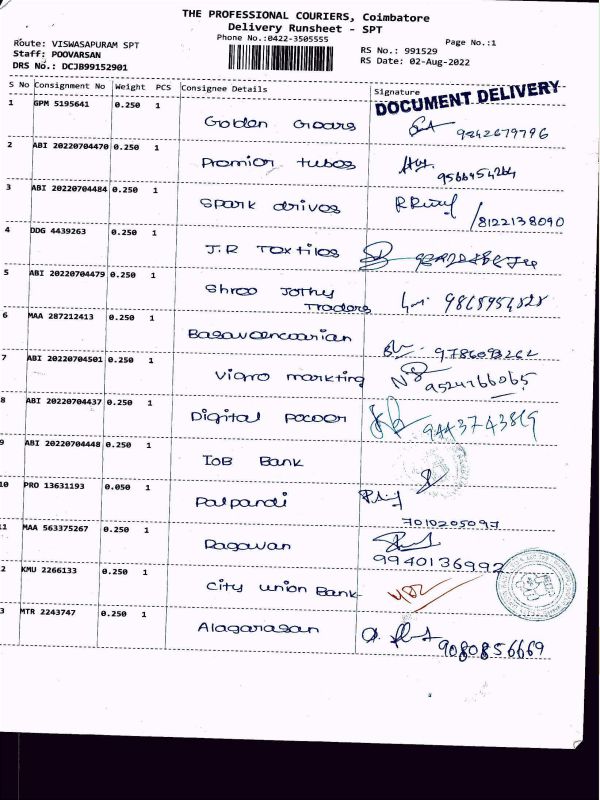 THE PROFESSIONAL COURIERS, Coimbatore
Delivery Runsheet - SPT
Phone No.:0422-3505555
Page No.:1
Route: VISWASAPURAM SPT
Staff: POOVARSAN
DRS No.: DCJB99152901
RS No.: 991529
RS Date: 02-Aug-2022
S No Consignment No Weight PCS Consignee Details Signature
DOCUMENT DELIVERY
1 GPM 5195641 0.250 1
Golden Gears 9842679796
2 ABI 20220704470 0.250 1
Promior tubos 9566454264
3 ABI 20220704484 0.250 1
Spark drivos /8122138090
4 DDG 4439263 0.250 1
J.R Toxtilos
5 ABI 20220704479 0.250 1
Shroo Jothy
Tradors 9868954828
6 MAA 287212413 0.250 1
9786093262
7 ABI 20220704501 0.250 1
Vigro markting 9524766065
8 ABI 20220704437 0.250 1
Digital pocoer 9443743819
9 ABI 20220704448 0.250 1
IOB Bank
10 PRO 13631193 0.050 1
Palpandi
7010205097
11 MAA 563375267 0.250 1
Ragavan
9940136992
2 KMU 2266133 0.250 1
City union Bank
3 MTR 2243747 0.250 1
Alagarasan 9080856669